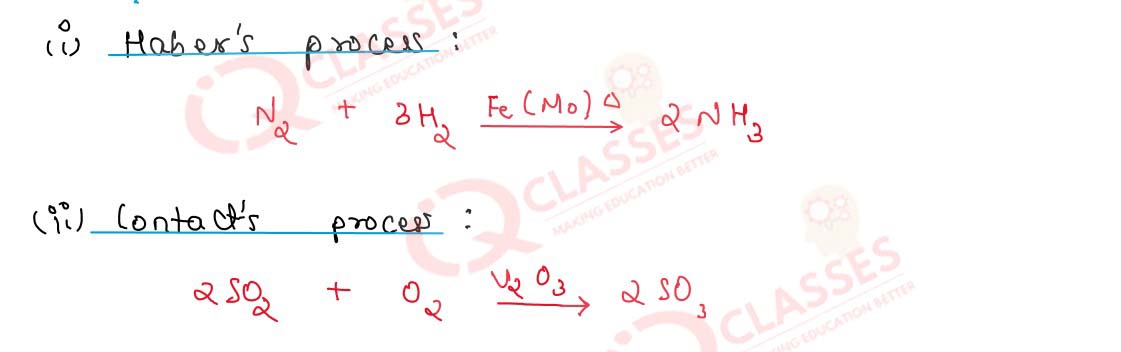 (i) Haber's process :
N₂ + 3H₂ Fe (Mo) Δ → 2 NH₃
(ii) Contact's process :
2 SO₂ + O₂ V₂O₃ → 2 SO₃
CLASSES
MAKING EDUCATION BETTER
CLASSES
MAKING EDUCATION BETTER
CLASSES
MAKING EDUCATION BETTER